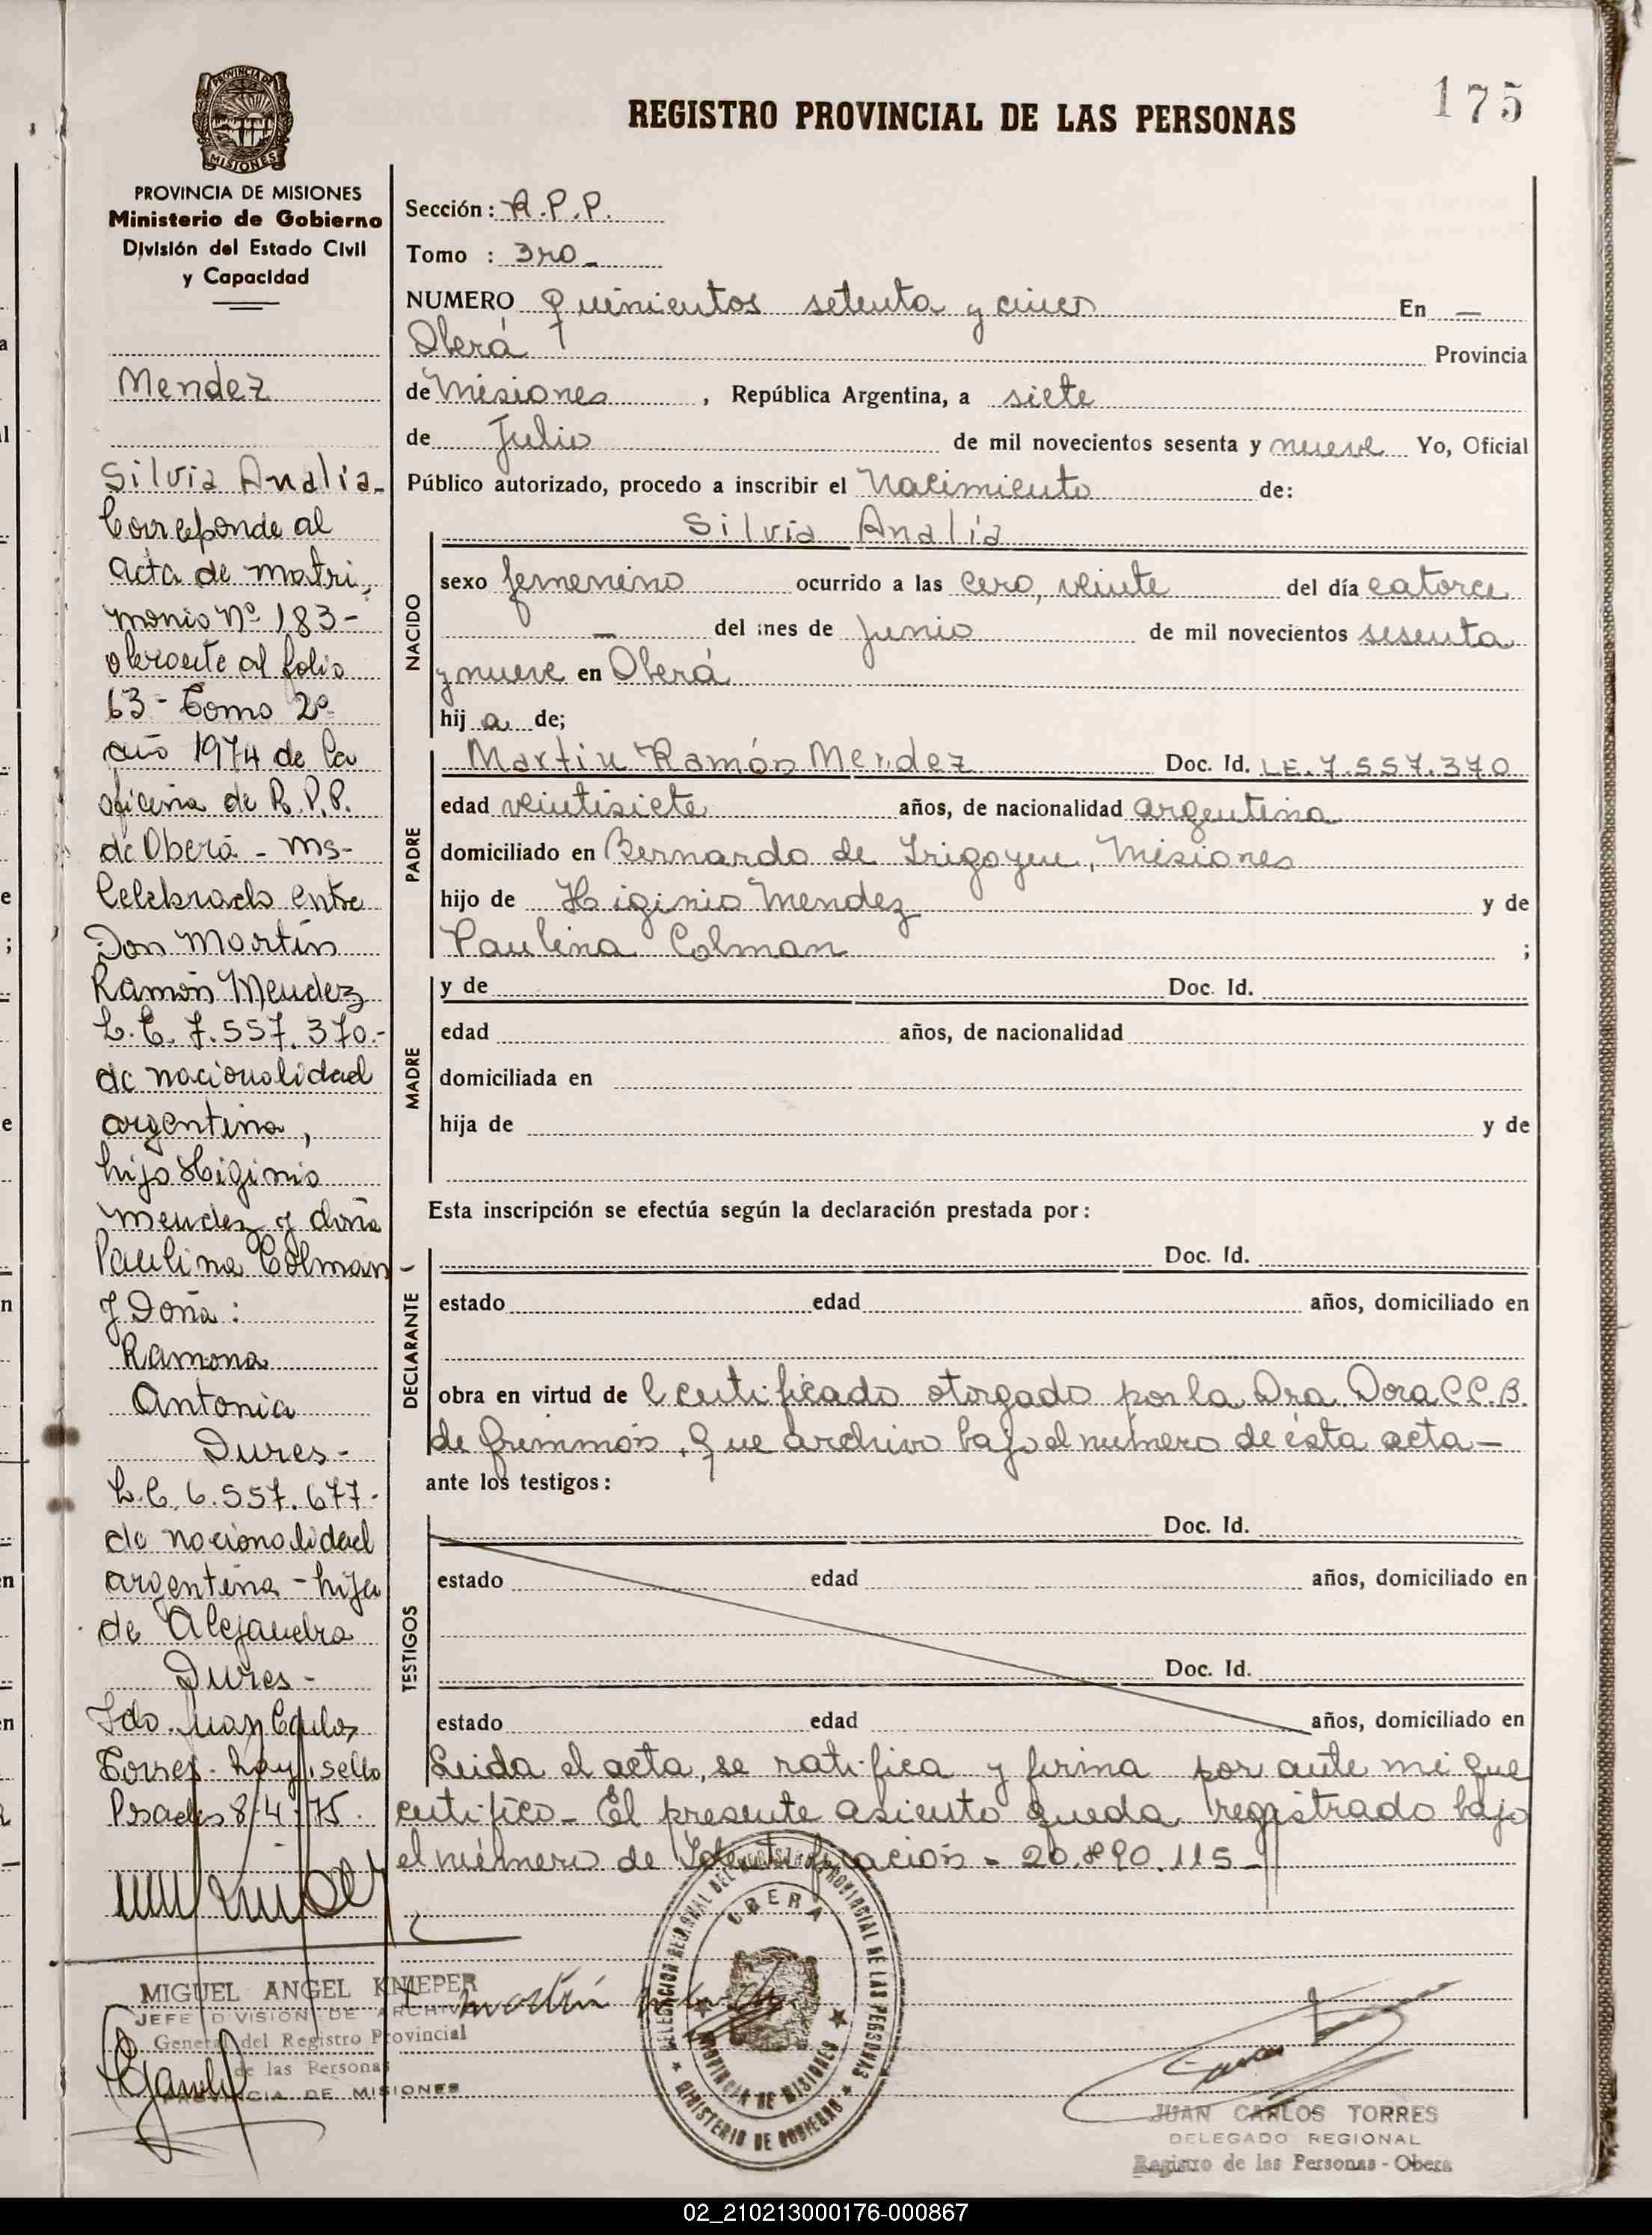 175
REGISTRO PROVINCIAL DE LAS PERSONAS
PROVINCIA DE
MISIONES
PROVINCIA DE MISIONES
Ministerio de Gobierno
División del Estado Civil
y Capacidad
Mendez
Silvia Analia-
Correponde al
acta de matri
monio nº 183-
obrante al folio
63- Tomo 2º
año 1974 de la
oficina de R.P.P.
de Oberá - Ms-
Celebrado entre
Don Martín
Ramón Mendez
L.E. 7.557.370.-
de nacionalidad
argentina,
hijo Higinio
Mendez y doña
Paulina Colman -
y Doña:
Ramona
Antonia
Dures-
L.C. 6.557.677-
de nacionalidad
argentina - hija
de Alejandra
Dures-
Fdo. Juan Carlos
Torres. hay sello
Posadas 8-4-75.
MIGUEL ANGEL KNIEPER
JEFE DIVISION DE ARCHIVO
General del Registro Provincial
de las Personas
PROVINCIA DE MISIONES
Sección: R.P.P.
Tomo : 3ro-
NUMERO quinientos setenta y cinco En —
Oberá Provincia
de Misiones, República Argentina, a siete
de Julio de mil novecientos sesenta y nueve Yo, Oficial
Público autorizado, procedo a inscribir el Nacimiento de:
NACIDO
Silvia Analia
sexo femenino ocurrido a las cero, veinte del día catorce
— del mes de Junio de mil novecientos sesenta
y nueve en Oberá
hij a de;
PADRE
Martin Ramón Mendez Doc. Id. LE. 7.557.370
edad veintisiete años, de nacionalidad argentina
domiciliado en Bernardo de Irigoyen, Misiones
hijo de Higinio Mendez y de
Paulina Colman ;
MADRE
y de Doc. Id.
edad años, de nacionalidad
domiciliada en
hija de y de
Esta inscripción se efectúa según la declaración prestada por:
DECLARANTE
Doc. Id.
estado edad años, domiciliado en
obra en virtud de l certificado otorgado por la Dra. Dora C.C.B.
de Grimmón, que archivo bajo el número de ésta acta-
ante los testigos:
TESTIGOS
Doc. Id.
estado edad años, domiciliado en
Doc. Id.
estado edad años, domiciliado en
Leida el acta, se ratifica y firma por ante mi que
certifico- El presente asiento queda registrado bajo
el número de Identificación - 20.890.115-
DELEGACION REGIONAL DEL REGISTRO PROVINCIAL DE LAS PERSONAS
OBERA
PROVINCIA DE MISIONES
MINISTERIO DE GOBIERNO
JUAN CARLOS TORRES
DELEGADO REGIONAL
Registro de las Personas - Obera
02_210213000176-000867